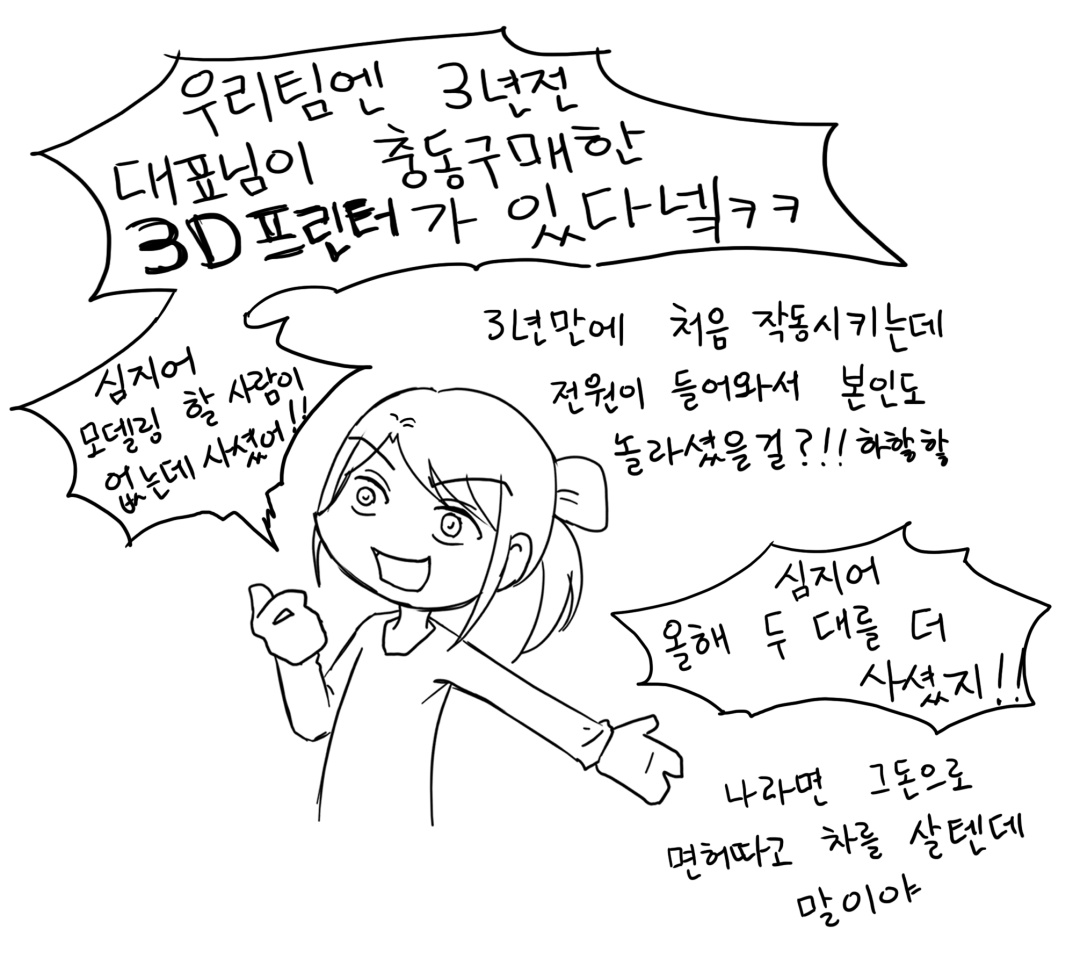 우리팀엔 3년전
대표님이 충동구매한
3D프린터가 있다넼ㅋㅋ
심지어
모델링 할 사람이
없는데 사셨어!!
3년만에 처음 작동시키는데
전원이 들어와서 본인도
놀라셨을걸?!! 하핳핳
심지어
올해 두 대를 더
사셨지!!
나라면 그돈으로
면허따고 차를 살텐데
말이야